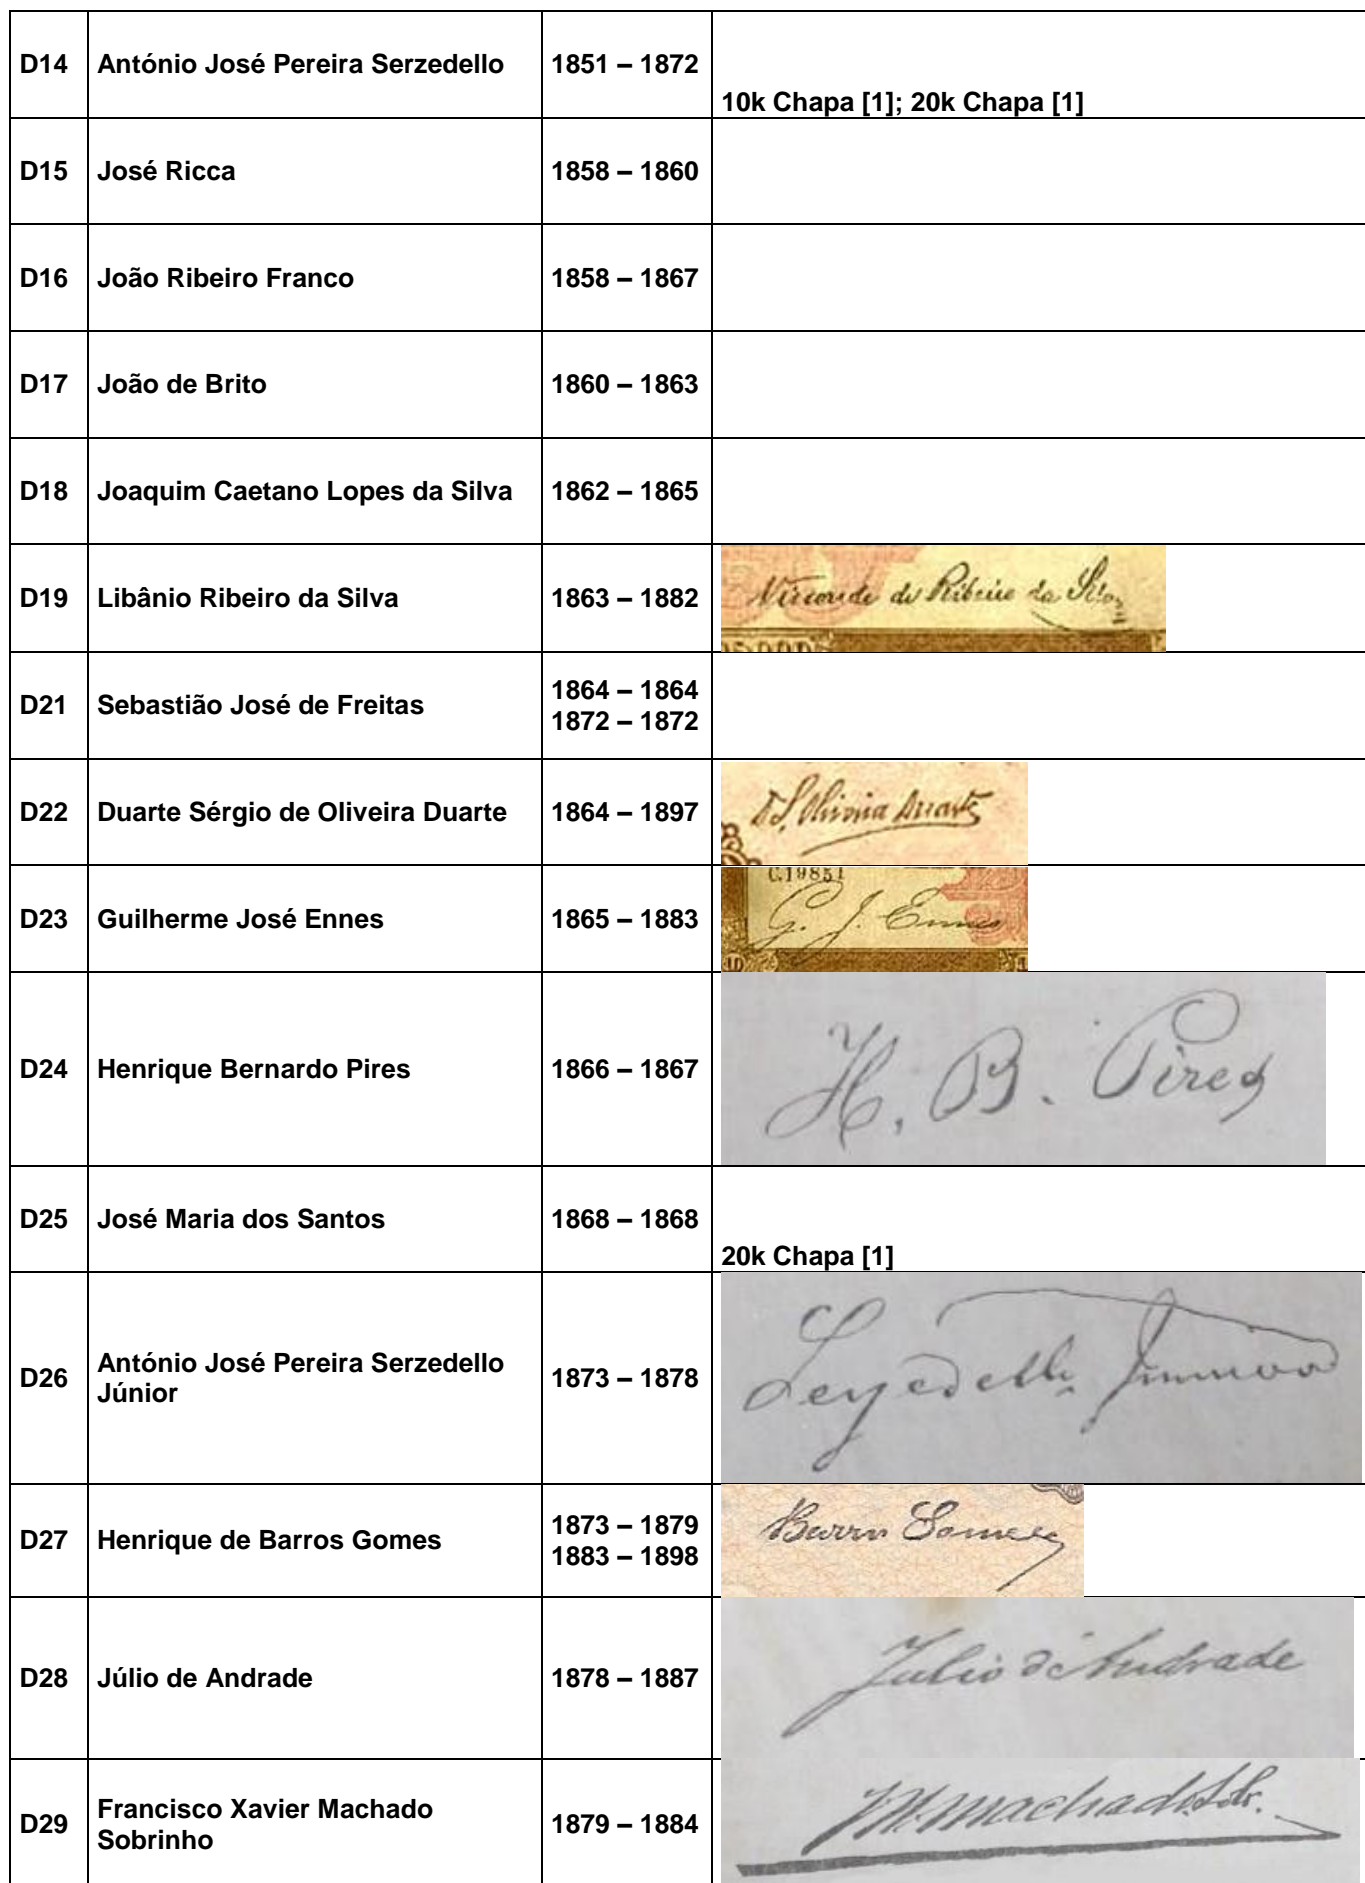 D14 António José Pereira Serzedello 1851 – 1872
10k Chapa [1]; 20k Chapa [1]
D15 José Ricca 1858 – 1860
D16 João Ribeiro Franco 1858 – 1867
D17 João de Brito 1860 – 1863
D18 Joaquim Caetano Lopes da Silva 1862 – 1865
D19 Libânio Ribeiro da Silva 1863 – 1882
Visconde de Ribeiro da Silva
D21 Sebastião José de Freitas 1864 – 1864
1872 – 1872
D22 Duarte Sérgio de Oliveira Duarte 1864 – 1897
D S. Oliveira Duarte
D23 Guilherme José Ennes 1865 – 1883
C.19851
G. J. Ennes
D24 Henrique Bernardo Pires 1866 – 1867
H. B. Pires
D25 José Maria dos Santos 1868 – 1868
20k Chapa [1]
D26 António José Pereira Serzedello
Júnior 1873 – 1878
Serzedello Junior
D27 Henrique de Barros Gomes 1873 – 1879
1883 – 1898
Barros Gomes
D28 Júlio de Andrade 1878 – 1887
Julio d'Andrade
D29 Francisco Xavier Machado
Sobrinho 1879 – 1884
Machado